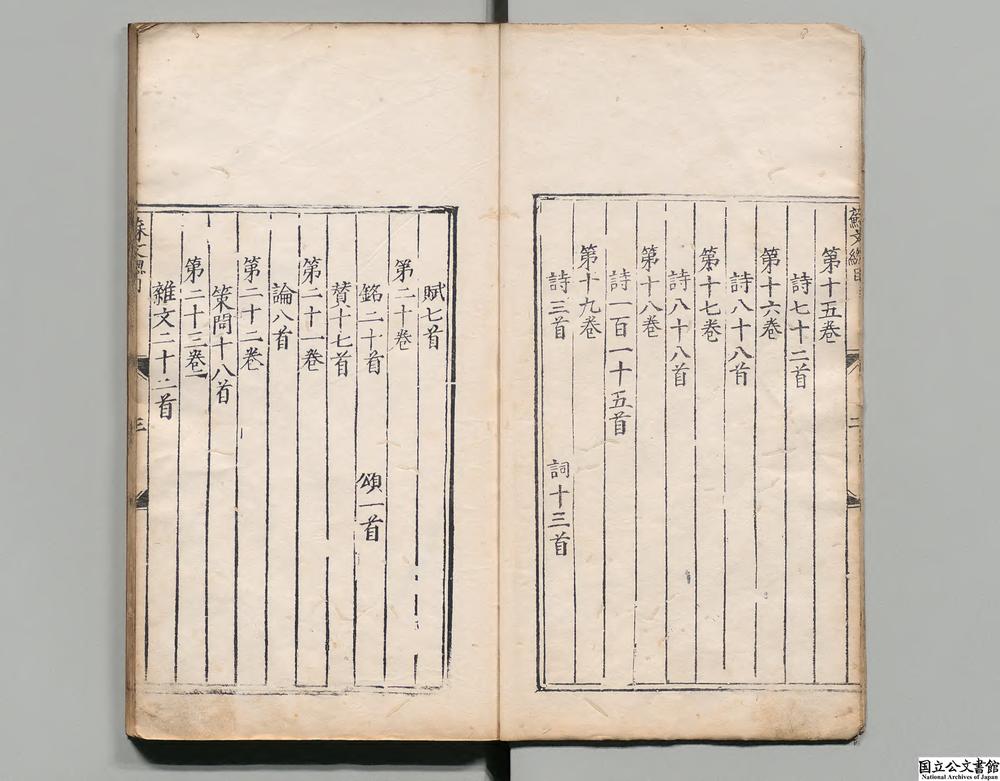 蘇文總目
二
第十五卷
詩七十二首
第十六卷
詩八十八首
第十七卷
詩八十八首
第十八卷
詩一百一十五首
第十九卷
詩三首 詞十三首
賦七首
第二十卷
銘二十首 頌一首
贊十七首
第二十一卷
論八首
第二十二卷
策問十八首
第二十三卷
雜文二十二首
蘇文總目
三
国立公文書館
National Archives of Japan